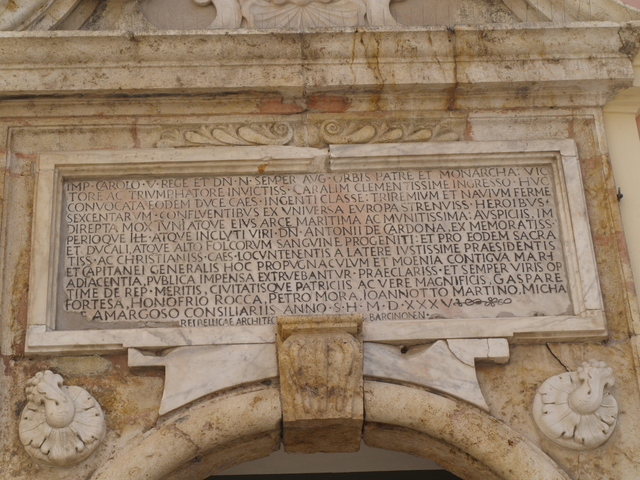 IMP·CAROLO·V·REGE ET DN̄·N·SEMPER AVG·ORBIS PATRE ET MONARCHA: VIC
TORE AC TRIVMPHATORE INVICTISS·CARALIM CLEMENTISSIME INGRESSO·HVC
CONVOCATA EODEM DVCE CAES·INGENTI CLASSE: TRIREMIVM ET NAVIVM FERME
SEXCENTARVM·CONFLVENTIBVS EX VNIVERSA EVROPA STRENVISS·HEROIBVS·
DIREPTA MOX TVNI ATQVE EIVS ARCE MARTIMA AC MVNITISSIMA: AVSPICIIS, IM
PERIOQVE ILL·ATQVE INCLVTI VIRI·DN̄·ANTONII DE CARDONA, EX MEMORATISS·
ET DVCALI ATQVE ALTO FOLCORVM SANGVINE PROGENITI: ET PRO EODEM SACRA
TISS·AC CHRISTIANISS·CAES·LOCVNTENENTIS A LATERE IVSTISSIME PRAESIDENTIS
ET CAPITANEI GENERALIS HOC PROPVGNACVLVM ET MOENIA CONTIGVA MARI
ADIACENTIA, PVBLICA IMPENSA EXTRVEBANTVR·PRAECLARISS·ET SEMPER VIRIS OP
TIME DE REP·MERITIS, CIVITATISQVE PATRICIIS AC VERE MAGNIFICIS, GASPARE
FORTESA, HONOFRIO ROCCA, PETRO MORA, IOANNOTTO MARTINO, MICHA
AMARGOSO CONSILIARIIS ANNO·S·H·M·D·XXXV
REI BELLICAE ARCHITEC BARCINONEN·